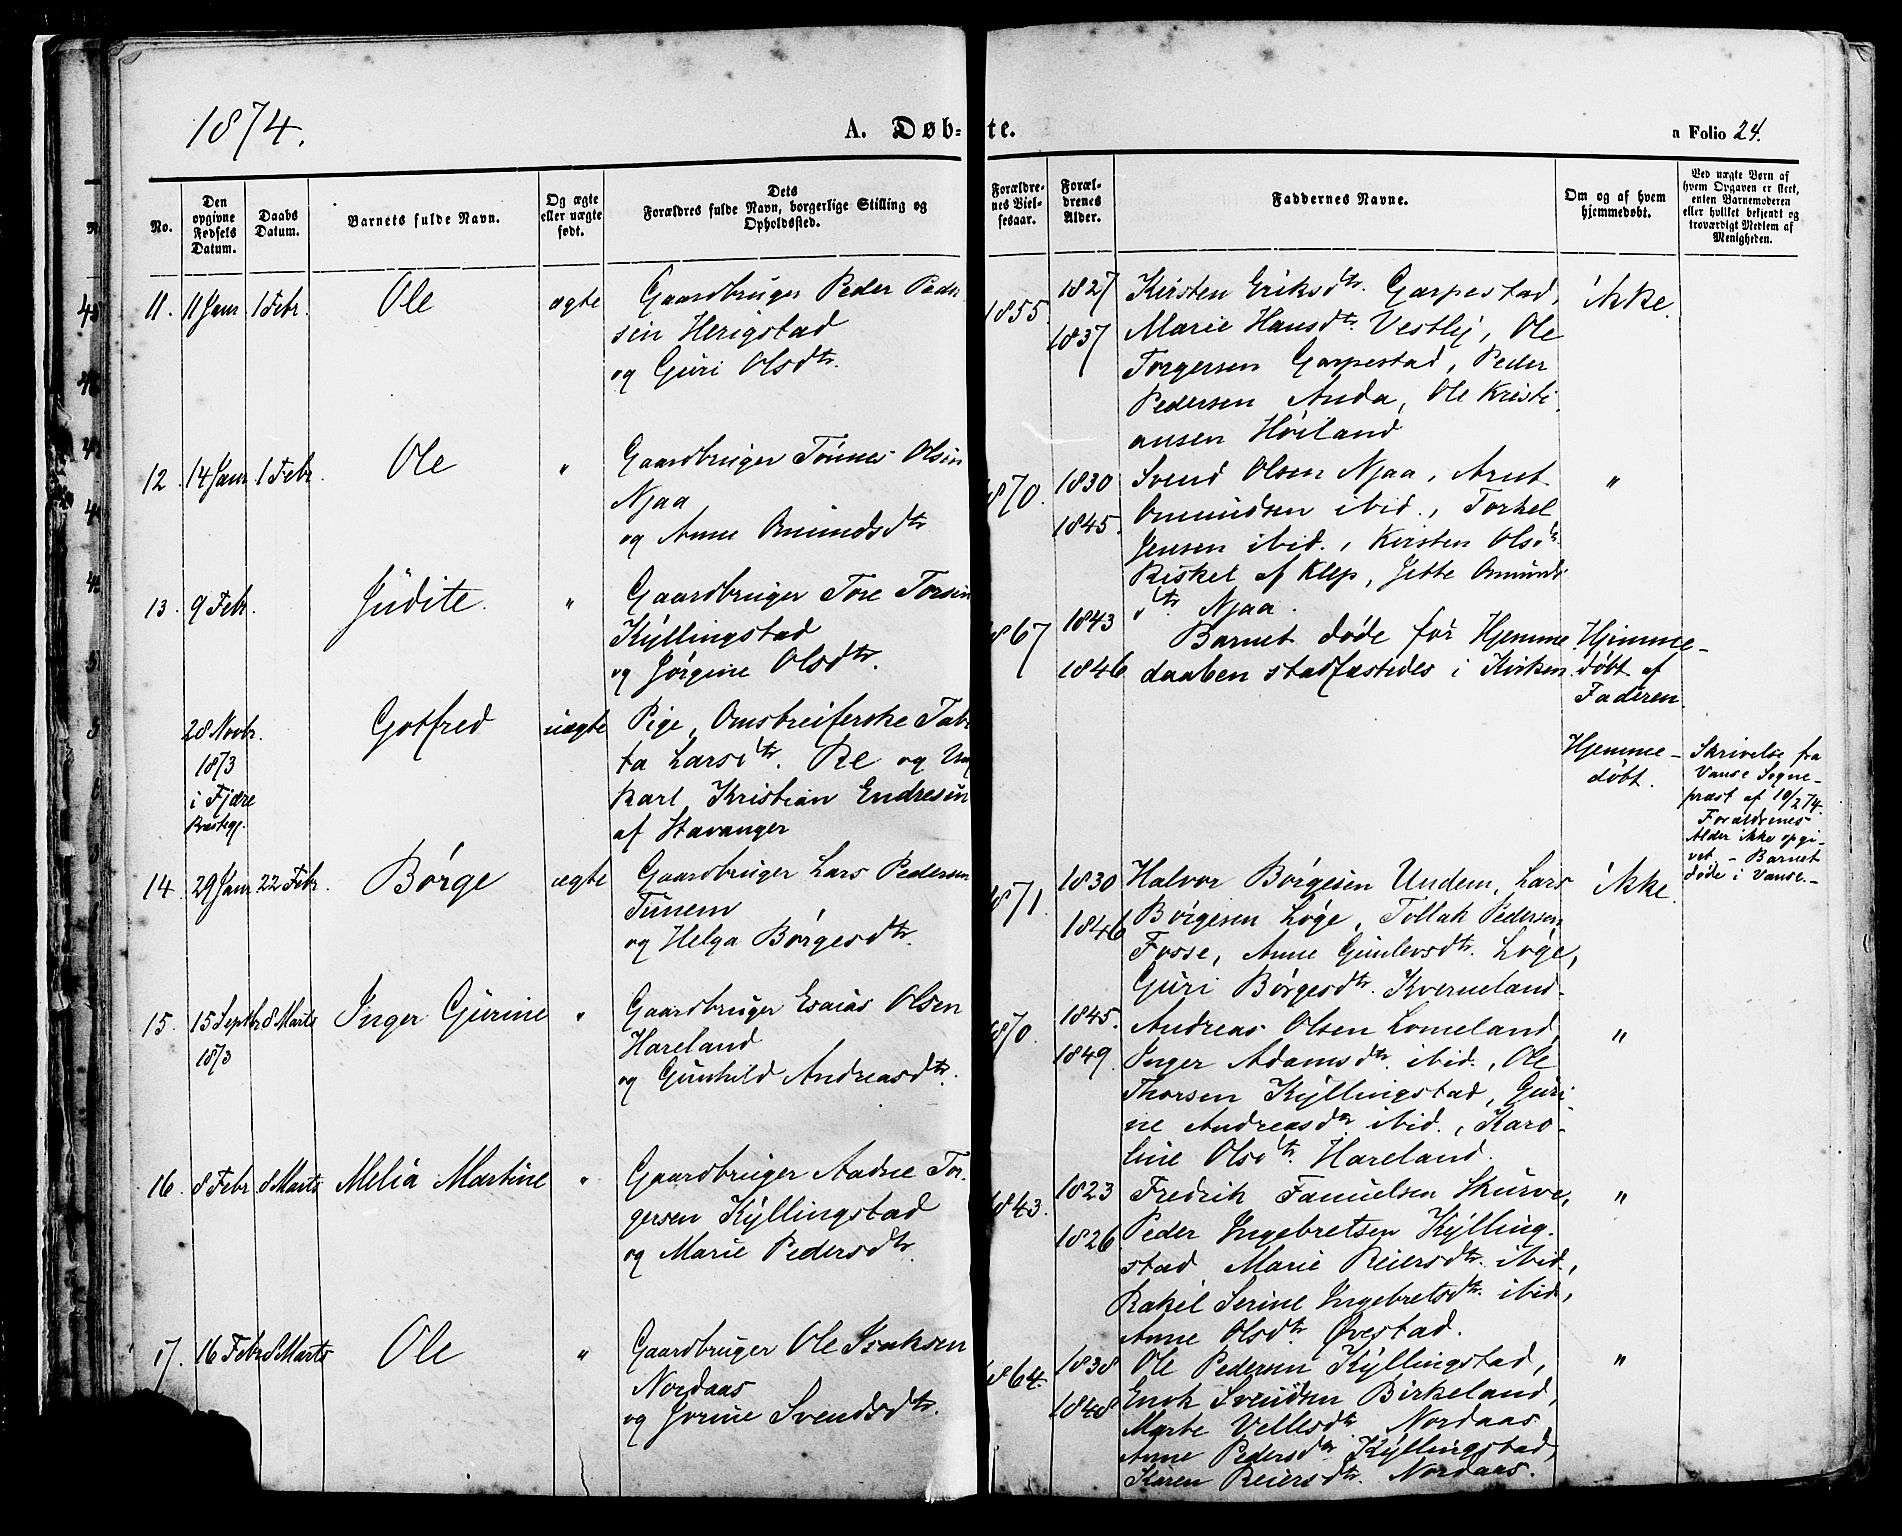 1874.
A. Døb-
te.
a Folio 24.
No.
Den opgivne Fødsels Datum.
Daabs Datum.
Barnets fulde Navn.
Og ægte eller uægte født.
Dets
Forældres fulde Navn, borgerlige Stilling og
Opholdssted.
Forældrenes Vielsesaar.
Forældrenes Alder.
Faddernes Navne.
Om og af hvem hjemmedøbt.
Ved uægte Børn af hvem Opgaven er skeet, enten Barnemoderen eller hvilket bekjendt og troværdigt Medlem af Menigheden.
11. 11 Janr 1 Febr. Ole ægte Gaardbruger Peder Peder
sen Herigstad
og Guri Olsdtr.
1855. 1827
1837
Kirsten Eriksdtr. Garpestad,
Marie Hansdtr. Vestly, Ole
Torgersen Garpestad, Peder
Pedersen Anda, Ole Kristi
ansen Høiland
ikke.
12. 14 Janr 1 Febr. Ole " Gaardbruger Tønnes Olsen
Njaa
og Anne Omundsdtr
1870. 1830
1845.
Svend Olsen Njaa, Arnt
Omundsen ibid., Torkel
Jensen ibid., Kirsten Olsdtr
af Klep, Jette Omunds
dtr. Njaa.
"
13. 9 Febr. Judite. " Gaardbruger Tore Torsen
Kyllingstad
og Jørgine Olsdtr.
1867 1843
1846
Barnet døde før Hjemme
daaben stadfæstedes i Kirken.
Hjemme-
døbt af
Faderen.
28 Novbr.
1873
i Fjære
Præstegj.
Gotfred uægte Pige, Omstreiferske Tab
ta Larsdtr. Re og Ung
karl Kristian Endresen
af Stavanger
Hjemme-
døbt.
Skrivelse fra
Vanse Sogne-
præst af 10/2 74.
Forældrenes
Alder ikke opgi-
vet. - Barnet
døde i Vanse.-
14. 29 Janr 22 Febr. Børge ægte Gaardbruger Lars Pedersen
Tunem
og Helga Børgesdtr.
1871. 1830
1846
Halvor Børgesen Undem, Lars
Børgesen Løge, Tollak Pedersen
Fosse, Anne Gunlevsdtr. Løge,
Guri Børgesdtr. Kverneland.
ikke.
15. 15 Septbr 8 Marts
1873
Inger Gurine " Gaardbruger Esaias Olsen
Hareland
og Gunhild Andreasdtr.
1870. 1845.
1849.
Andreas Olsen Lomeland,
Inger Adamsdtr. ibid., Ole
Thorsen Kyllingstad, Guri
ne Andreasdtr ibid., Karo-
line Olsdtr. Hareland.
"
16. 8 Febr 8 Marts Melia Martine " Gaardbruger Aadne Tor-
gersen Kyllingstad
og Marie Pedersdtr.
1843. 1823
1826
Fredrik Samuelsen Skurve,
Peder Ingebretsen Kylling.
stad Marie Reiersdtr. ibid,
Rakel Serine Ingebretsdtr. ibid,
Anne Olsdtr. Øvestad.
"
17. 16 Febr 8 Marts Ole " Gaardbruger Ole Isaksen
Nordaas
og Jorine Svendsdtr.
1864. 1838
1848
Ole Pedersen Kyllingstad,
Enok Svendsen Birkeland,
Marte Vellesdtr Nordaas
Anne Pedersdtr Kyllingstad,
Karen Reiersdtr. Nordaas.
"